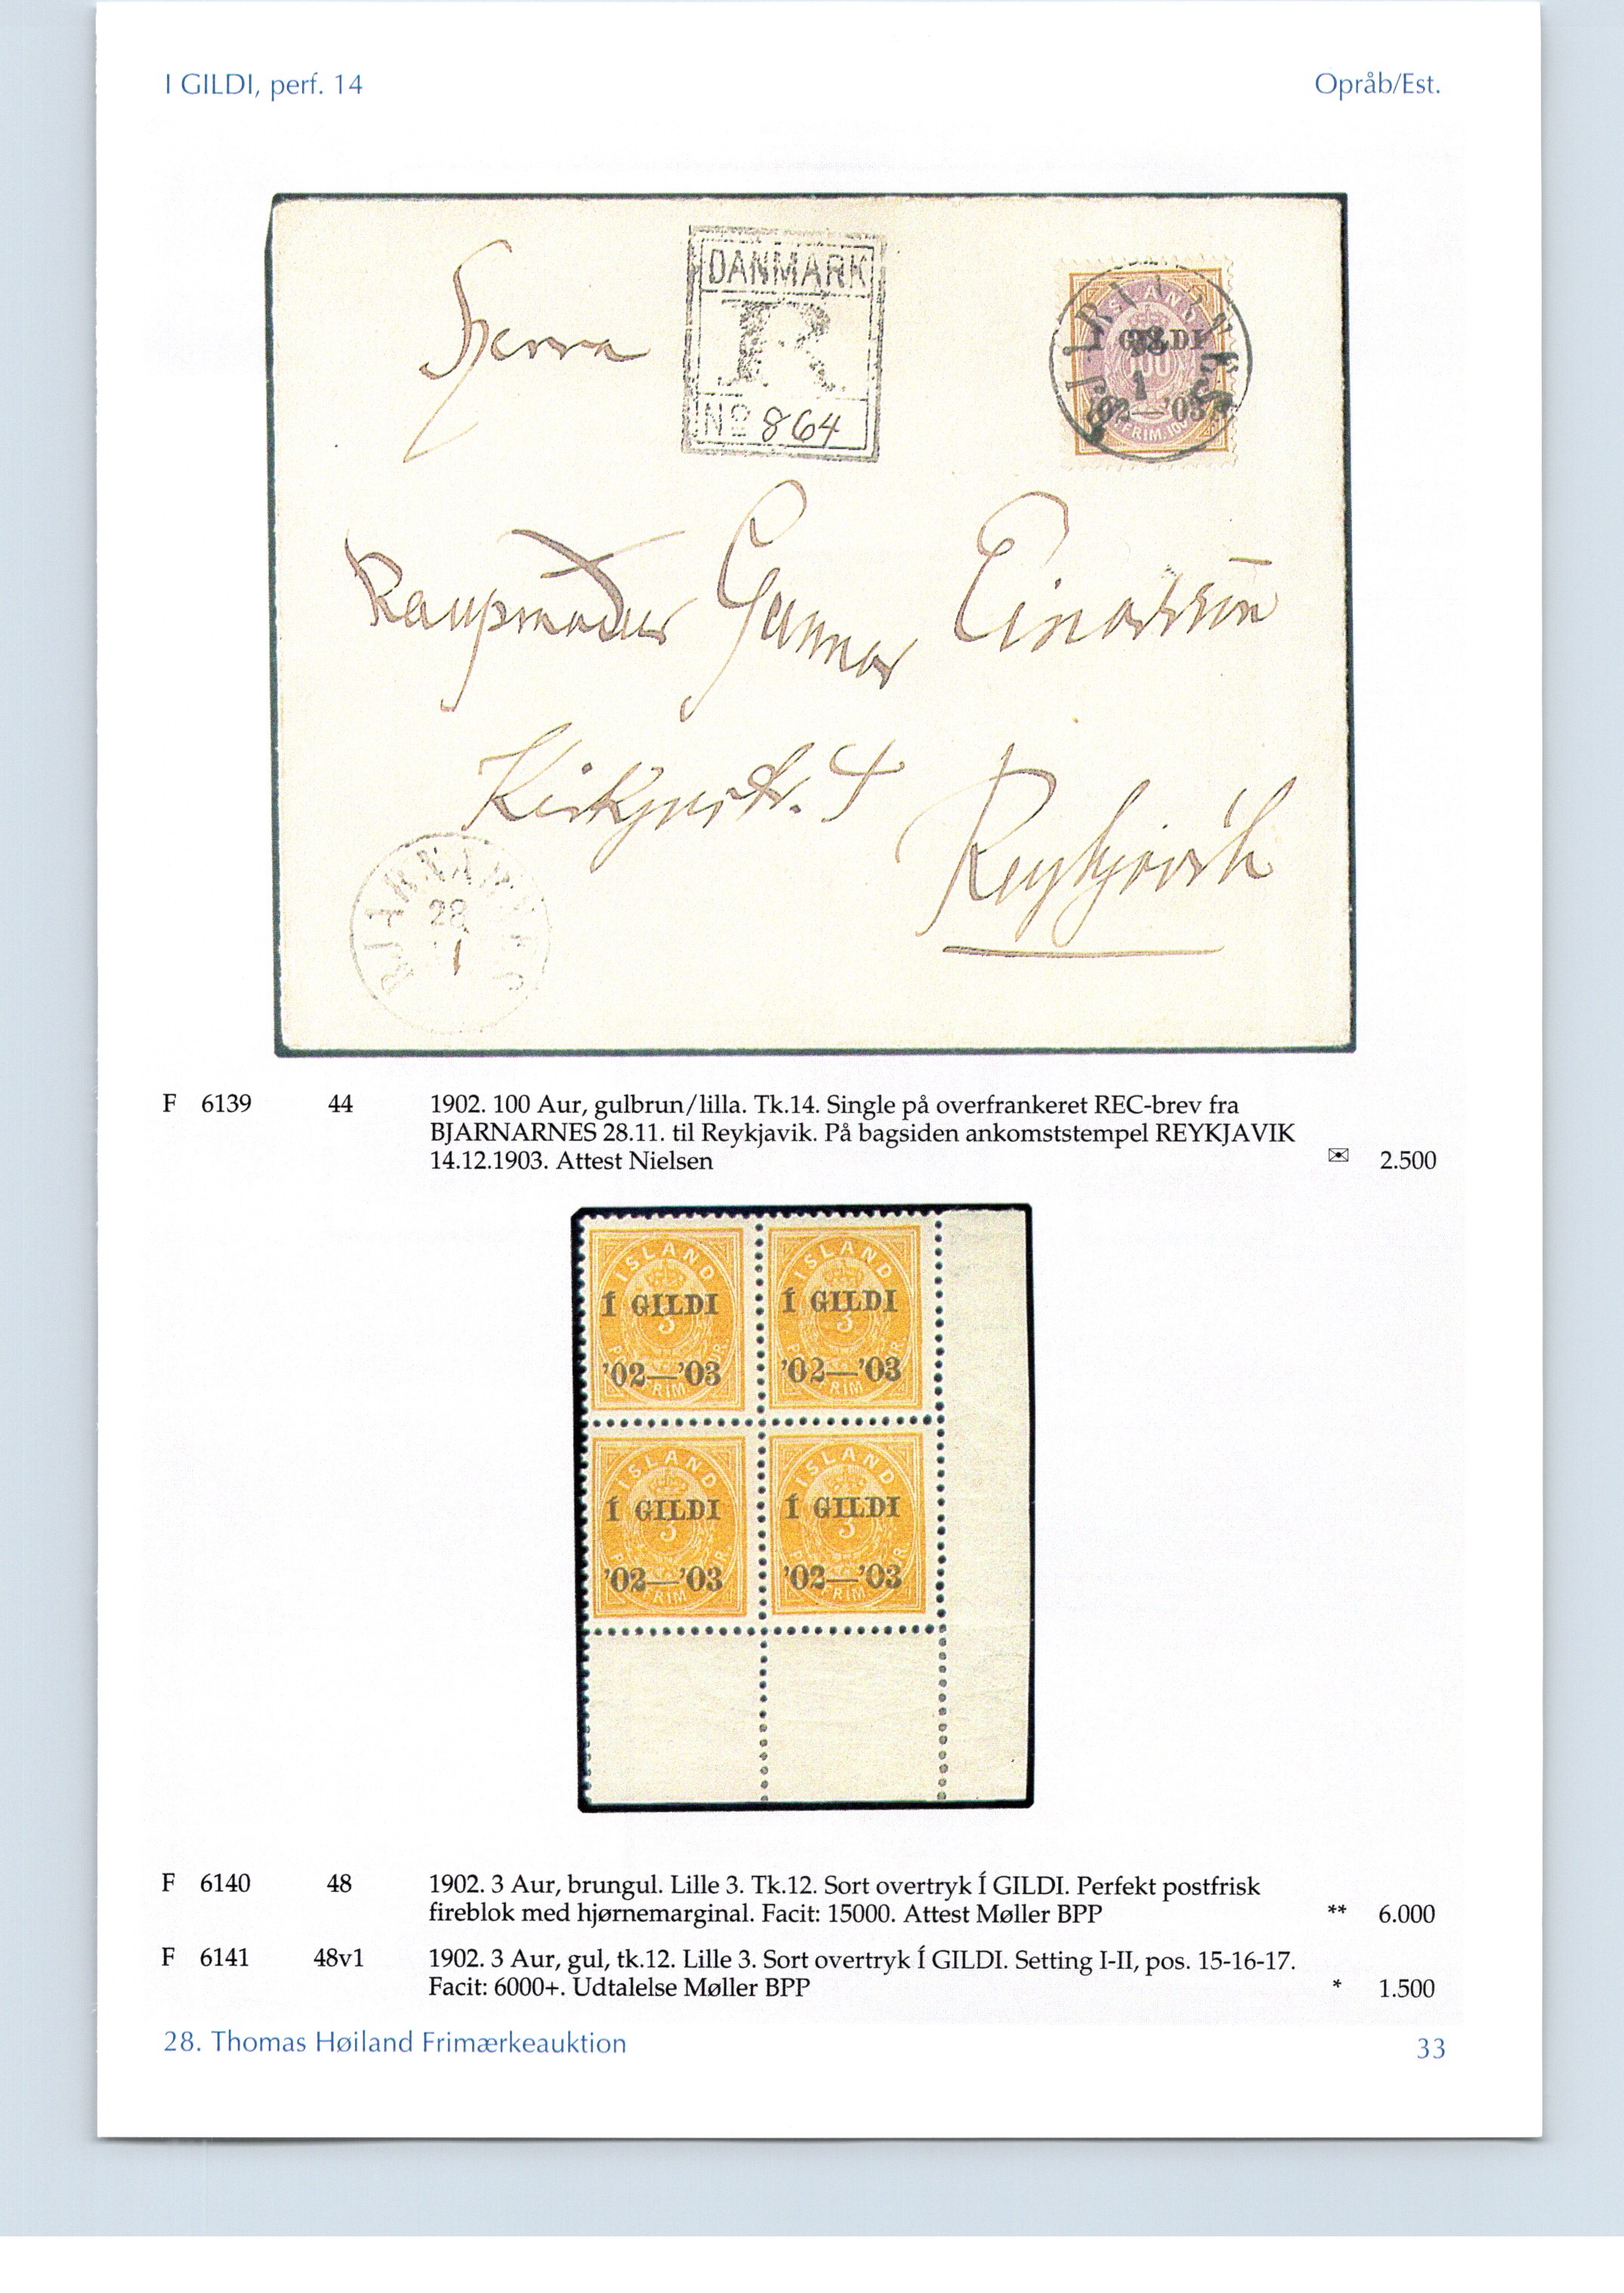 I GILDI, perf. 14
Opråb/Est.
Herra
DANMARK
R
No 864
ISLAND
Í GILDI
28
100
1
'02—'03
FRIM.
Kaupmaður Gunnar Einarsson
Kirkjustr. 4
Reykjavik
28
11
F 6139 44 1902. 100 Aur, gulbrun/lilla. Tk.14. Single på overfrankeret REC-brev fra
BJARNARNES 28.11. til Reykjavik. På bagsiden ankomststempel REYKJAVIK
14.12.1903. Attest Nielsen ✉ 2.500
ISLAND ISLAND
Í GILDI Í GILDI
3 3
'02—'03 '02—'03
FRIM FRIM
ISLAND ISLAND
Í GILDI Í GILDI
3 3
'02—'03 '02—'03
FRIM FRIM
F 6140 48 1902. 3 Aur, brungul. Lille 3. Tk.12. Sort overtryk Í GILDI. Perfekt postfrisk
fireblok med hjørnemarginal. Facit: 15000. Attest Møller BPP ** 6.000
F 6141 48v1 1902. 3 Aur, gul, tk.12. Lille 3. Sort overtryk Í GILDI. Setting I-II, pos. 15-16-17.
Facit: 6000+. Udtalelse Møller BPP * 1.500
28. Thomas Høiland Frimærkeauktion
33